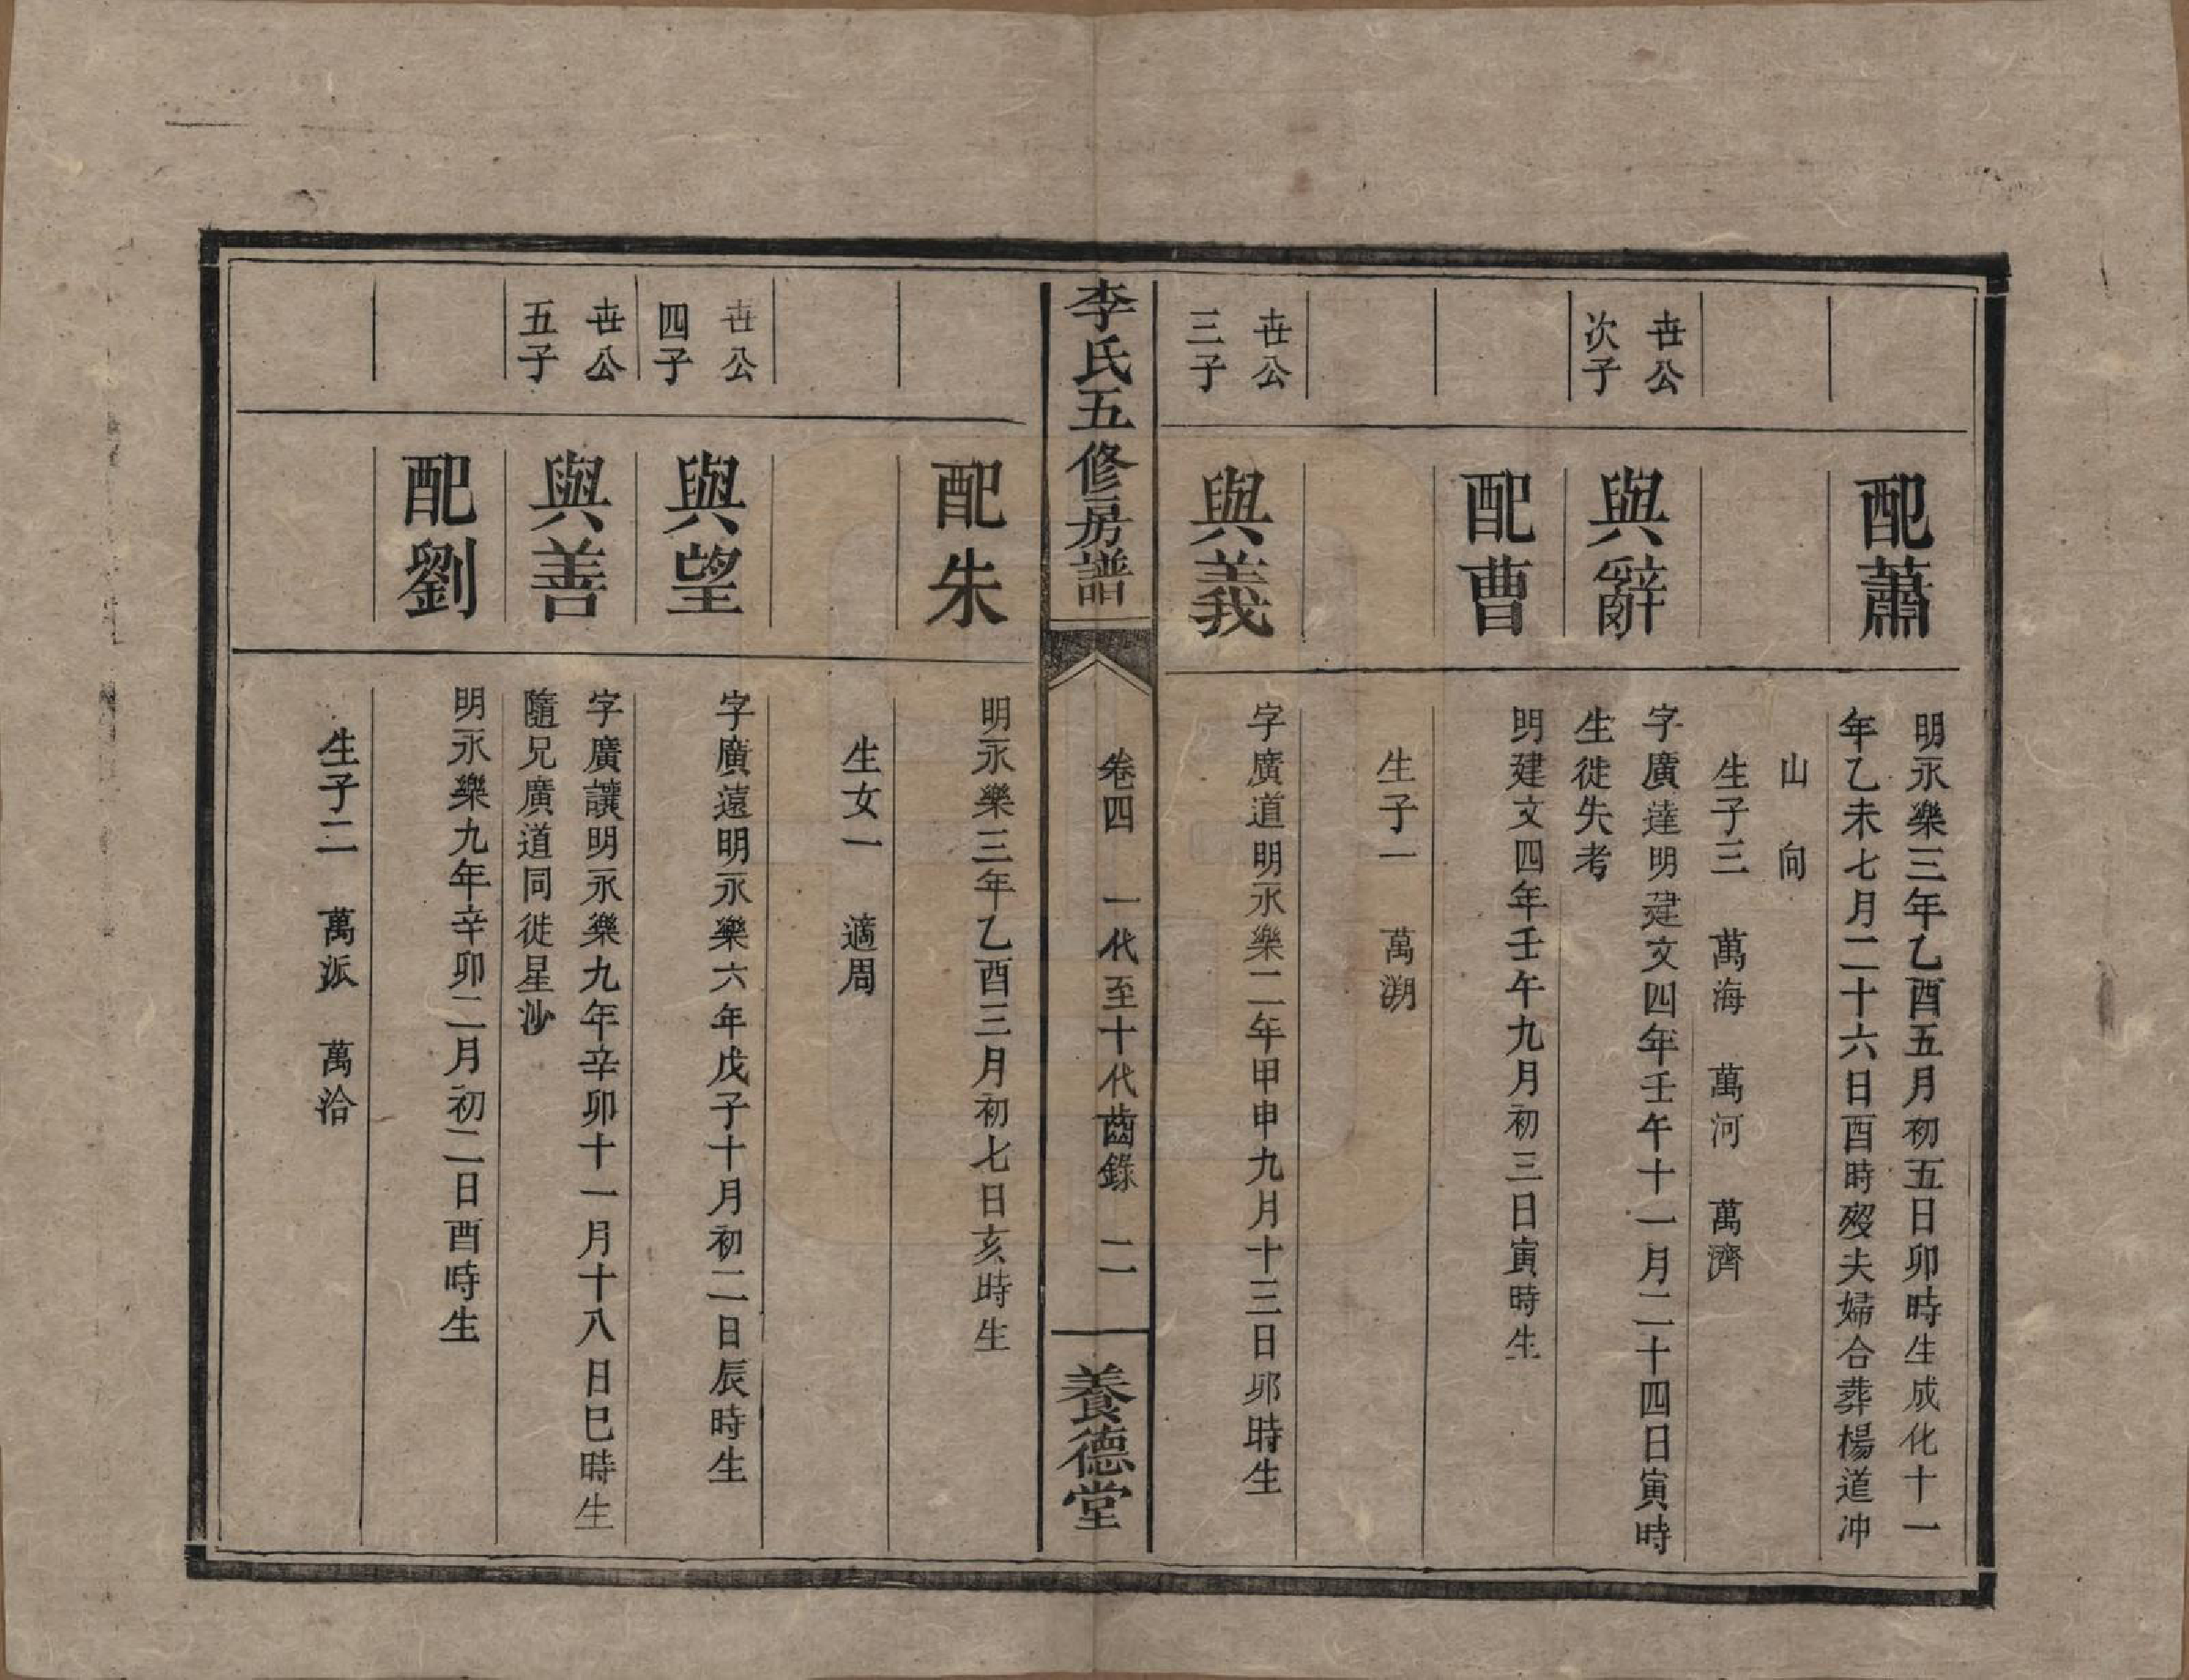 配蕭
明永樂三年乙酉五月初五日卯時生成化十一
年乙未七月二十六日酉時歿夫婦合葬楊道冲
山　向
生子三　萬海　萬河　萬濟
世公
次子
與辭
字廣達明建文四年壬午十一月二十四日寅時
生徙失考
配曹
明建文四年壬午九月初三日寅時生
生子一　萬溯
世公
三子
與義
字廣道明永樂二年甲申九月十三日卯時生
李氏五修房譜
卷四　一代至十代齒錄　二
養德堂
配朱
明永樂三年乙酉三月初七日亥時生
生女一　適周
世公
四子
與望
字廣遠明永樂六年戊子十月初二日辰時生
世公
五子
與善
字廣讓明永樂九年辛卯十一月十八日巳時生
隨兄廣道同徙星沙
配劉
明永樂九年辛卯二月初二日酉時生
生子二　萬派　萬洽